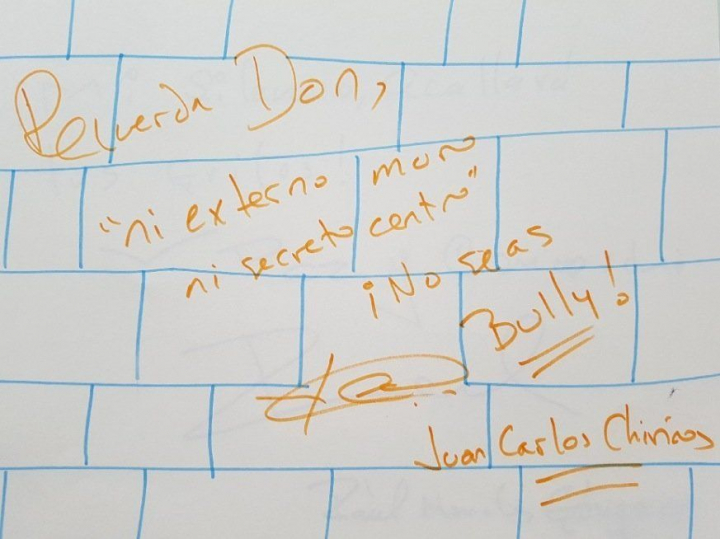 Recuerda Don,
"ni externo muro
ni secreto centro"
¡No seas
Bully!
Juan Carlos Chirinos